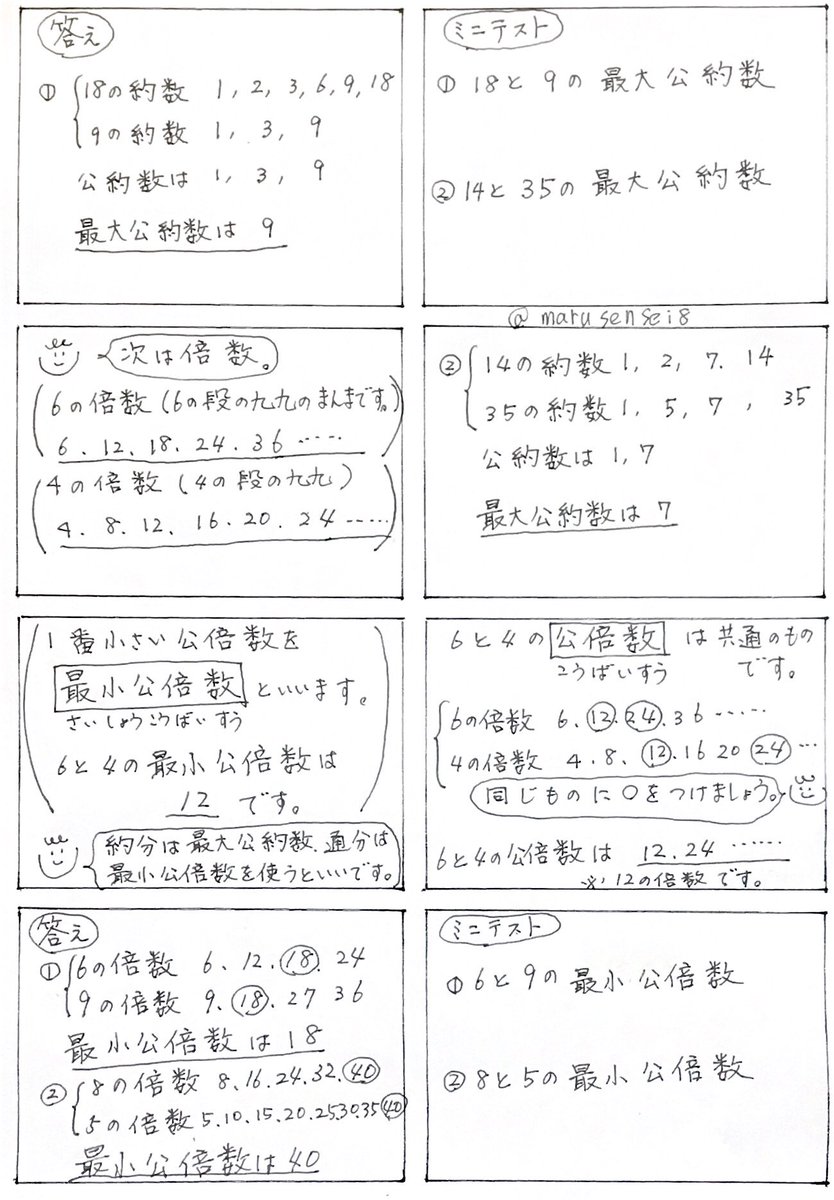 ミニテスト
① 18と 9の 最大公約数
② 14と 35の 最大公約数
答え
① 18の約数 1, 2, 3, 6, 9, 18
9の約数 1, 3, 9
公約数は 1, 3, 9
最大公約数は 9
@marusensei8
② 14の約数 1, 2, 7. 14
35の約数 1, 5, 7, 35
公約数は 1, 7
最大公約数は 7
次は倍数。
6の倍数(6の段の九九のまんまです。)
6. 12. 18. 24. 36 ……
4の倍数 (4の段の九九)
4. 8. 12、 16. 20. 24 ……
6と4の 公倍数 は 共通のもの
こうばいすう です。
6の倍数 6. 12. 24. 36 ……
4の倍数 4. 8. 12. 16 20 24 …
同じものに○をつけましょう。
6と4の公倍数は 12. 24 ……
※12の倍数です。
1番小さい公倍数を
最小公倍数 といいます。
さいしょうこうばいすう
6と4の最小公倍数は
12 です。
約分は最大公約数、通分は
最小公倍数を使うといいです。
ミニテスト
① 6と9の 最小公倍数
② 8と5の最小公倍数
答え
① 6の倍数 6、12. 18. 24
9の倍数 9. 18. 27 36
最小公倍数は18
② 8の倍数 8.16.24.32.40
5の倍数 5.10.15.20.25.30.35 40
最小公倍数は40